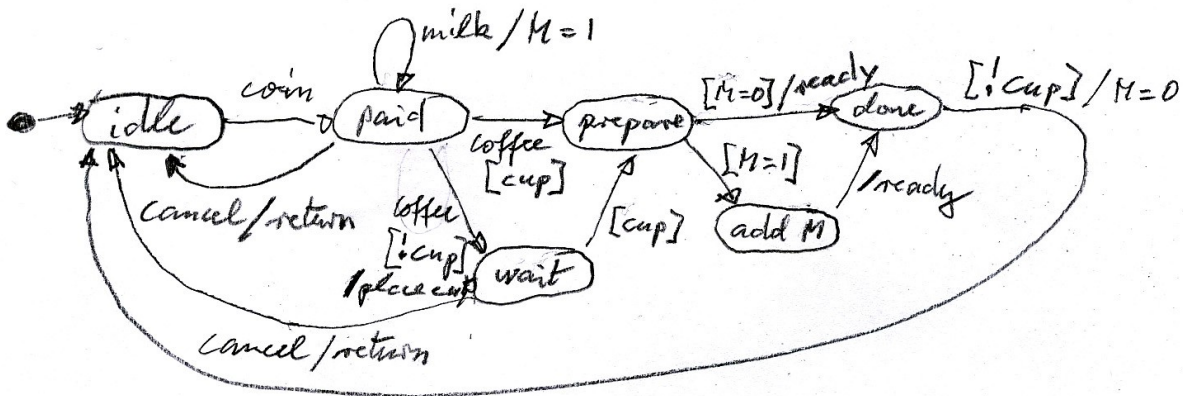 milk / M = 1
idle
coin
paid
coffee
[cup]
prepare
[M=0]/ready
done
[!cup] / M=0
cancel/return
coffee
[!cup]
/place cup
wait
[cup]
[M=1]
add M
/ready
cancel/return